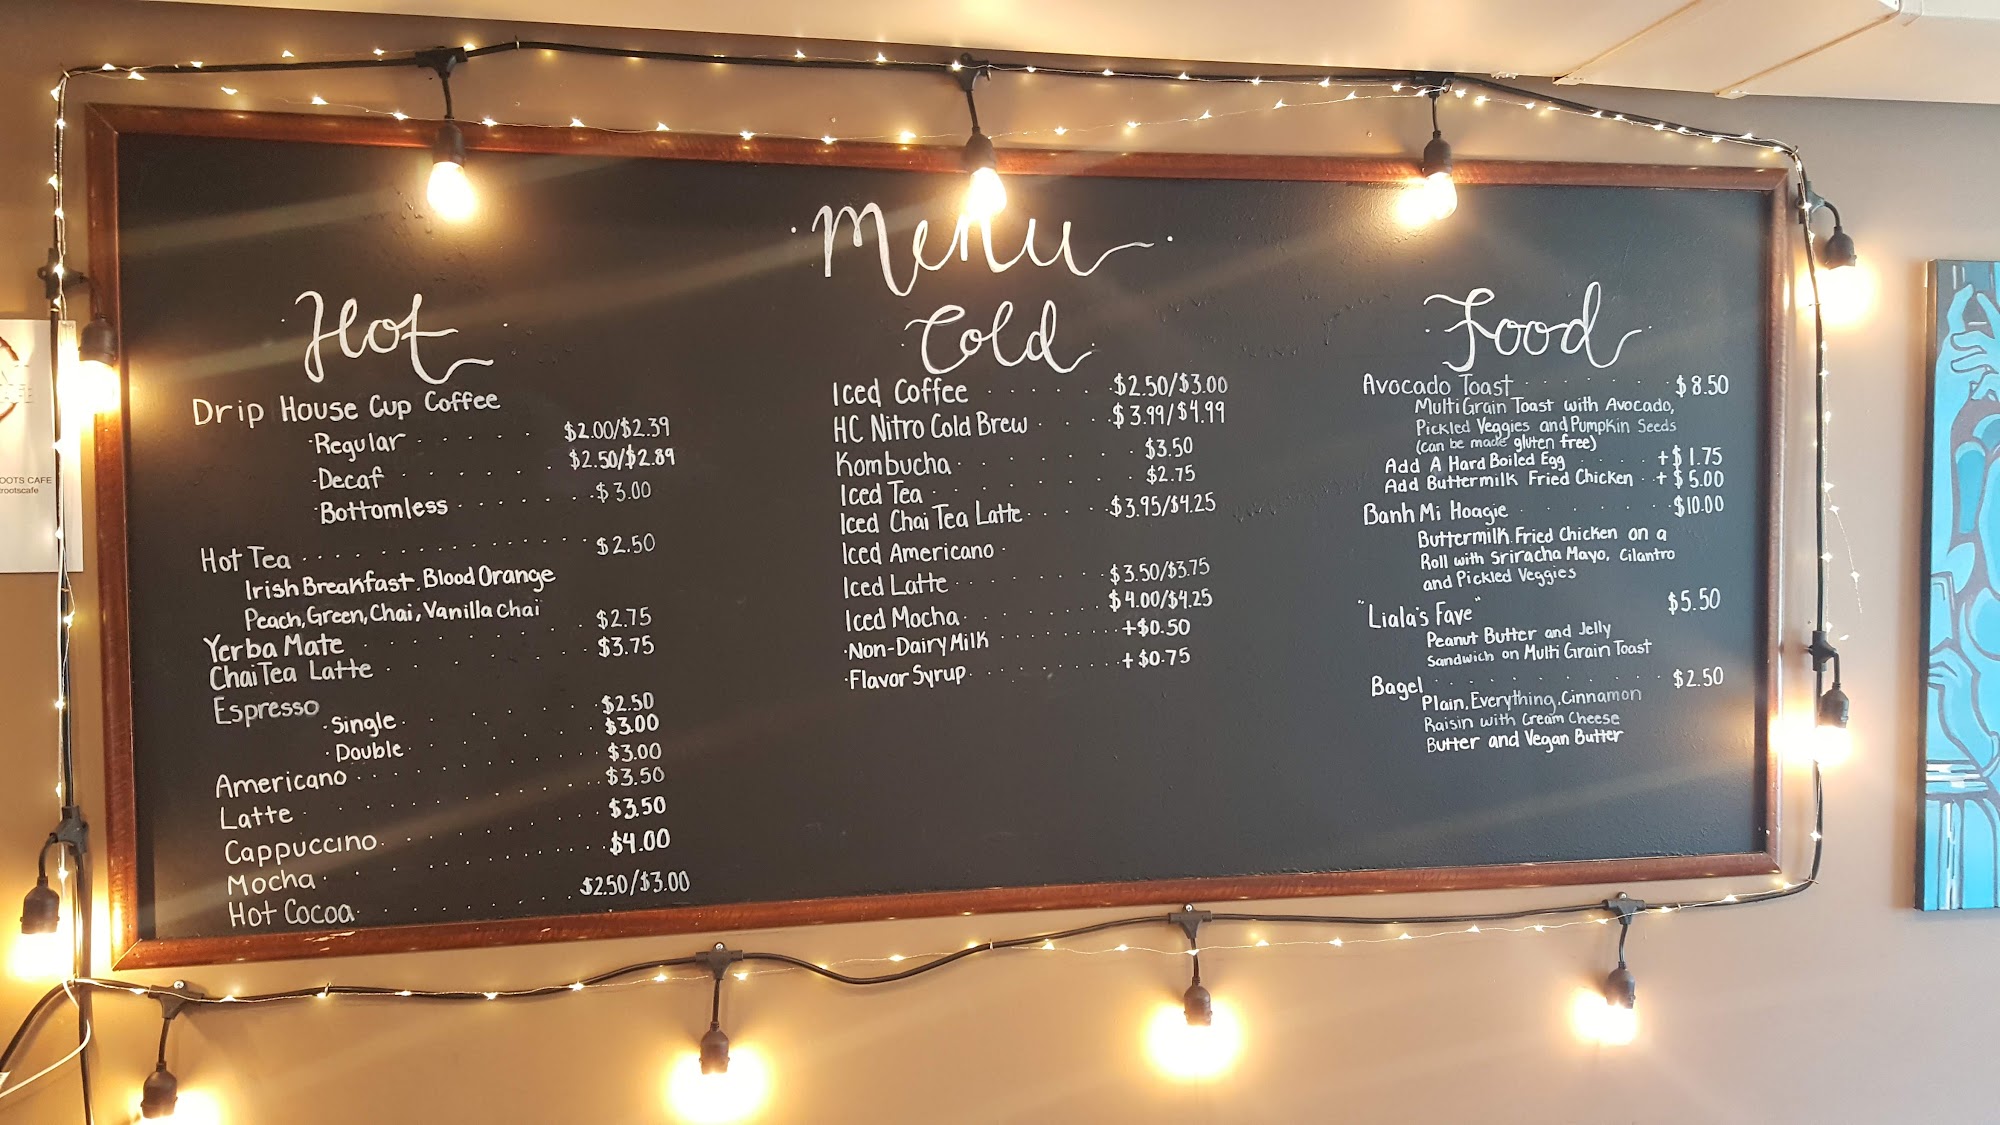 Menu
Hot
Drip House Cup Coffee
·Regular $2.00/$2.39
·Decaf $2.50/$2.89
·Bottomless $3.00
Hot Tea $2.50
Irish Breakfast, Blood Orange
Peach, Green, Chai, Vanilla Chai
Yerba Mate $2.75
Chai Tea Latte $3.75
Espresso
·Single $2.50
·Double $3.00
Americano $3.00
Latte $3.50
Cappuccino $3.50
Mocha $4.00
Hot Cocoa $2.50/$3.00
Cold
Iced Coffee $2.50/$3.00
HC Nitro Cold Brew $3.99/$4.99
Kombucha $3.50
Iced Tea $2.75
Iced Chai Tea Latte $3.95/$4.25
Iced Americano
Iced Latte $3.50/$3.75
Iced Mocha $4.00/$4.25
·Non-Dairy Milk +$0.50
·Flavor Syrup +$0.75
Food
Avocado Toast $8.50
Multi Grain Toast with Avocado,
Pickled Veggies and Pumpkin Seeds
(can be made gluten free)
Add A Hard Boiled Egg +$1.75
Add Buttermilk Fried Chicken +$5.00
Banh Mi Hoagie $10.00
Buttermilk Fried Chicken on a
Roll with Sriracha Mayo, Cilantro
and Pickled Veggies
"Liala's Fave" $5.50
Peanut Butter and Jelly
Sandwich on Multi Grain Toast
Bagel $2.50
Plain, Everything, Cinnamon
Raisin with Cream Cheese
Butter and Vegan Butter
OOTS CAFE
rootscafe